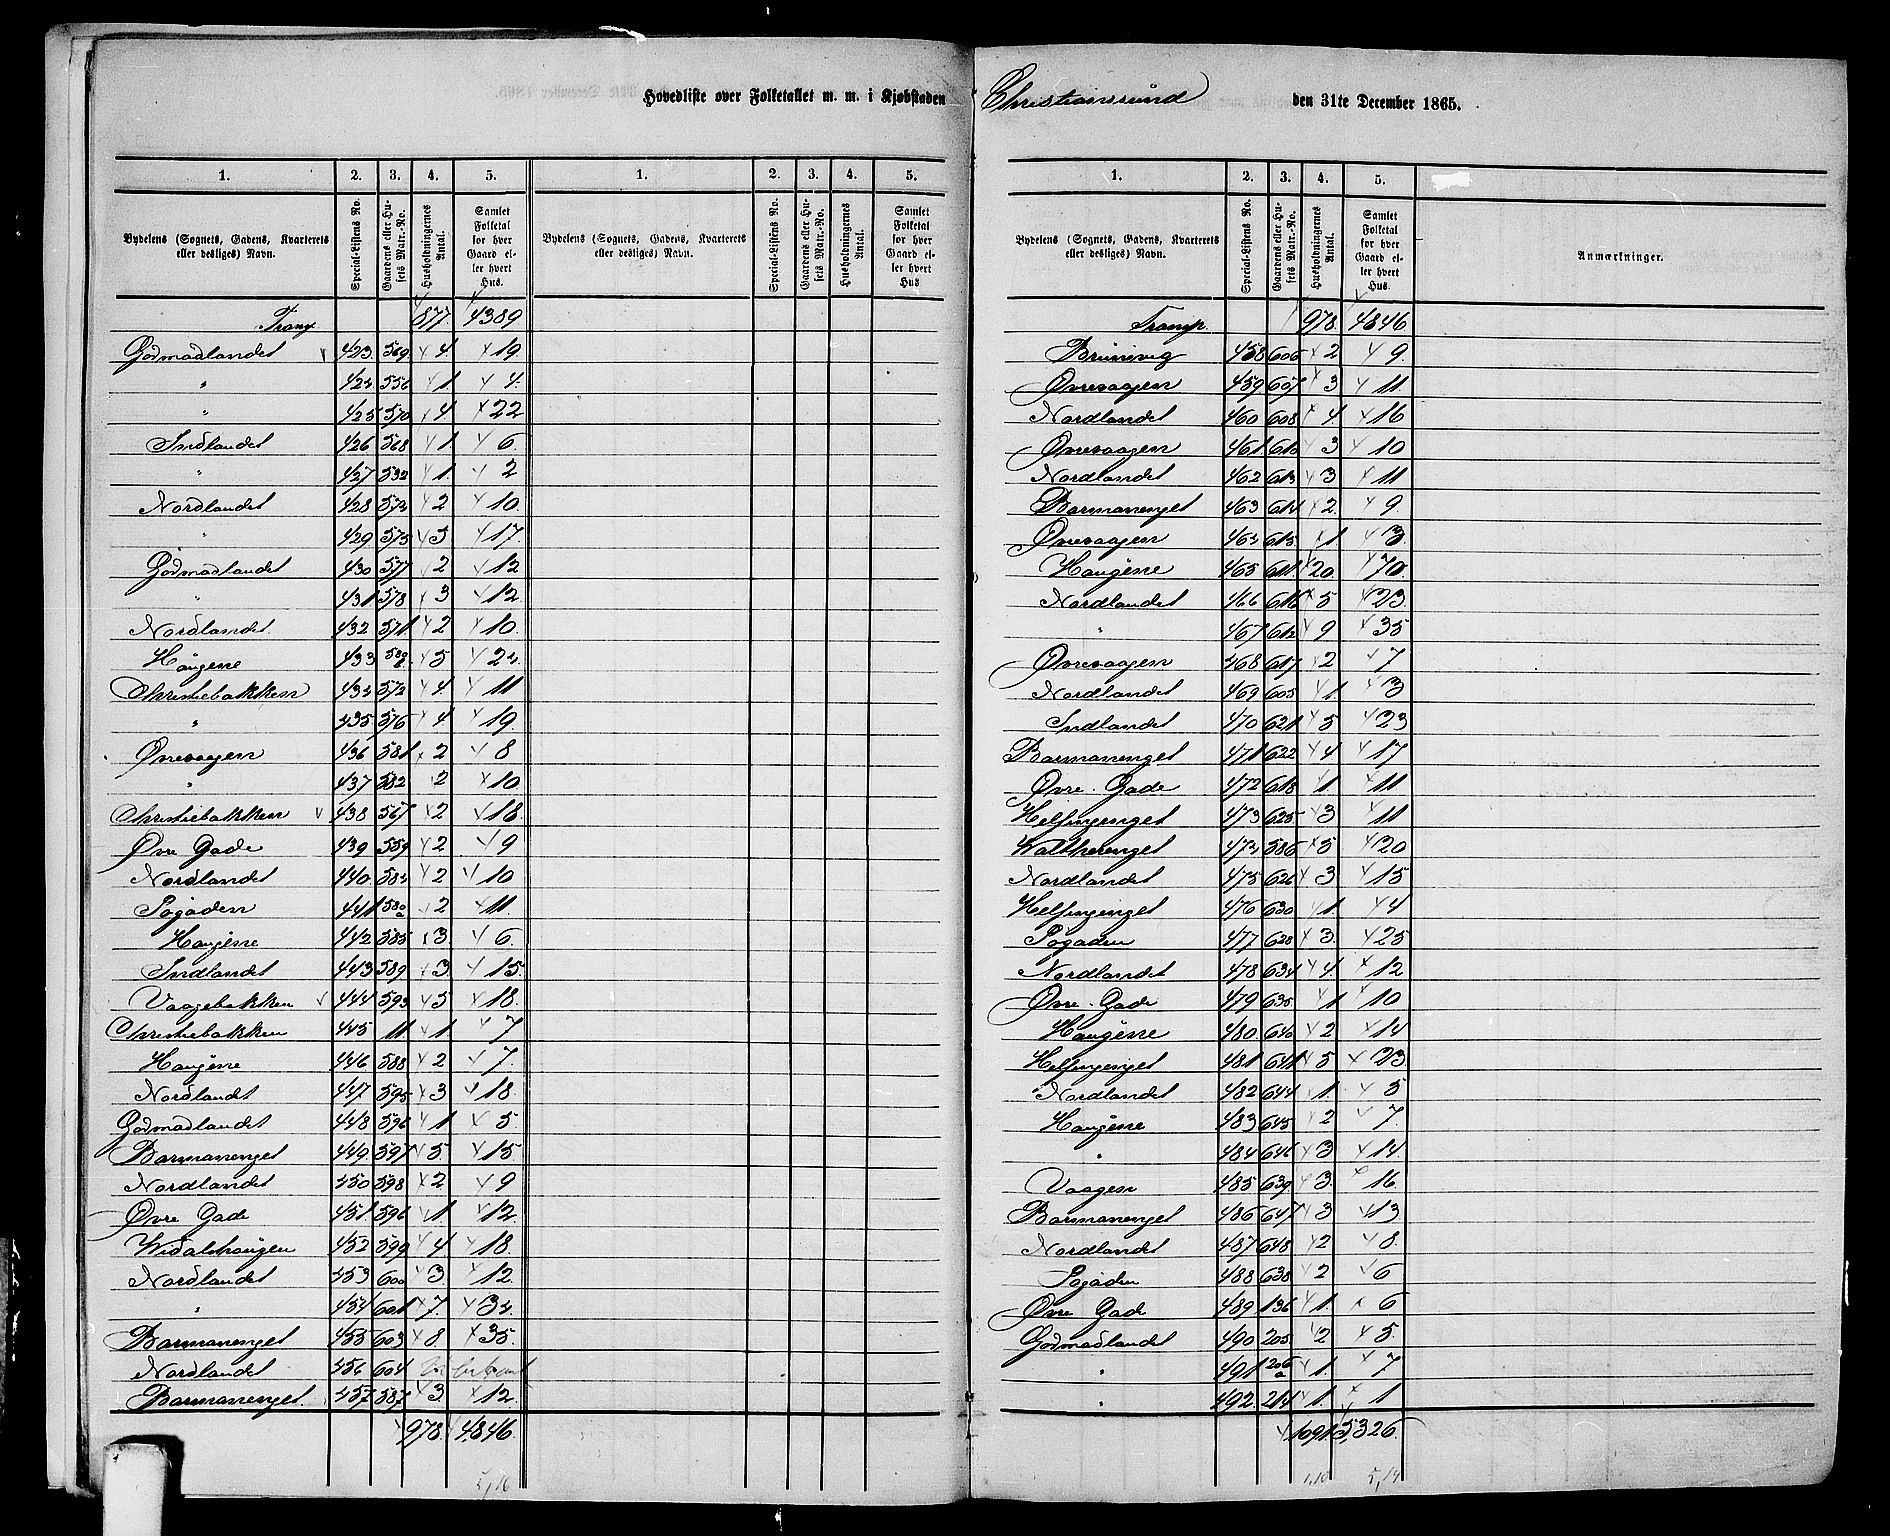 Hovedliste over Folketallet m. m. i Kjøbstaden Christianssund den 31te December 1865.
1. 2. 3. 4. 5. 1. 2. 3. 4. 5.
Bydelens (Sognets, Gadens, Kvarterets eller desliges) Navn. Special-Listens No. Gaardens eller Husets Matr.-No. Husholdningernes Antal. Samlet Folketal for hver Gaard eller hvert Hus.
Bydelens (Sognets, Gadens, Kvarterets eller desliges) Navn. Special-Listens No. Gaardens eller Husets Matr.-No. Husholdningernes Antal. Samlet Folketal for hver Gaard eller hvert Hus.
Transp. 877. 4389
Gomadlandet 423. 569 4. 19
" 424 556 1 4.
" 425 570 4. 22
Indlandet 426 568 1. 6
" 427 532 1. 2
Nordlandet 428 574 2 10.
" 429 575 5 17.
Gomadlandet 430 577 2 12
" 431 578 3 12.
Nordlandet. 432 571 2 10.
Haugene 433 5 24.
Christiebakken 434 572 4. 11
" 435 576 4 19
Ørrevaagen 436 581 2 8
" 437 582 2 10
Christiebakken 438 567 2 18.
Øvre Gade 439 559 2 9
Nordlandet 440 584 2 10
Pogaden 441 580 a 2 11.
Haugene 442 585 3. 6.
Indlandet 443 589 3 15.
Vaagebakken 444 593 5 18.
Christiebakken 445 11 1 7
Haugene 446 588 2 7.
Nordlandet 447 595 3 18.
Gomadlandet 448 596 1 5
Barmanenget 449. 597 5 15.
Nordlandet 450 598 2 9
Øvre Gade 451 596 1 12.
Widalshaugen 452 599 4 18.
Nordlandet 453 600 3. 12.
" 454 601 7. 34.
Barmanenget 455 603 8. 35.
Nordlandet 456 604 Ubekjent
Barmanenget. 457 587 3. 12.
978. 4,846.
1. 2. 3. 4. 5.
Bydelens (Sognets, Gadens, Kvarterets eller desliges) Navn. Special-Listens No. Gaardens eller Husets Matr.-No. Husholdningernes Antal. Samlet Folketal for hver Gaard eller hvert Hus. Anmærkninger.
Transp. 978. 4846
Brunsvig 458 606 2 9.
Ørrevaagen 459 607 3 11.
Nordlandet 460 608 4. 16
Ørrevaagen 461 610 3 10
Nordlandet 462 613 3 11
Barmanenget 463 614 2. 9
Ørrevaagen 464 615 1 3.
Haugene 465 611. 20. 70.
Nordlandet 466 616 5 23.
" 467 612 9 35
Ørrevaagen 468 617 2 7
Nordlandet 469 605 1 3
Indlandet 470 621 5 23
Barmanenget 471 622 4 17
Øvre Gade 472 618 1 11
Helsingenget 473 625 3 11
Waltherenget 474 586 5 20
Nordlandet 475 626 3 15
Helsingenget 476 630 1. 4
Pogaden 477 628 3. 25
Nordlandet 478 634 4. 12
Øvre Gade 479 635 1 10
Haugene 480 640 2 14
Helsingenget 481 641 5 23
Nordlandet 482 644 1. 5
Haugene 483 645 2 7
" 484 646 3 14
Vaagen 485 639 3. 16
Barmanenget 486 647 3 13
Nordlandet 487 648 2 8
Pogaden 488 638 2 6
Øvre Gade 489 136 1. 6
Gomadlandet 490 205 2 5.
" 491 206 a 1. 7
" 492 214 1. 1
1091 5,326